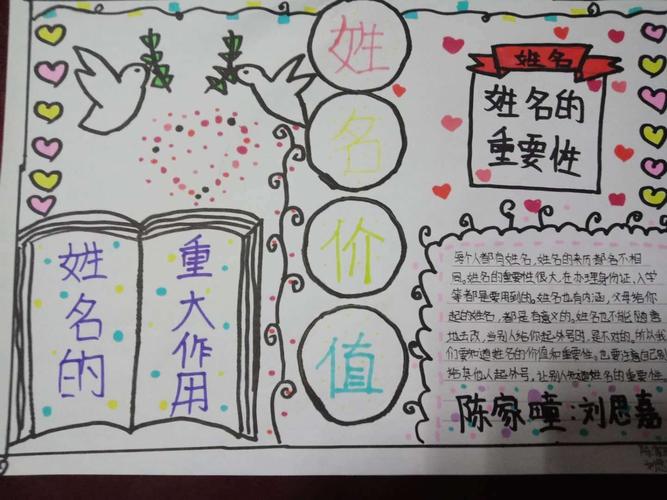 姓
名
价
值
姓名
姓名的
重要性
姓名的
重大作用
每个人都有姓名,姓名的来历都名不相
同。姓名的重要性很大,在办理身份证,入学
等都是要用到的。姓名也有内涵,父母给你
起的姓名,都是有意义的。姓名也不能随意
地去改,当别人给你起外号时,是不对的。所以我
们要知道姓名的价值和重要性。也要注意自己别
给其他人起外号,让别人知道姓名的重要性
陈家瞳:刘思嘉